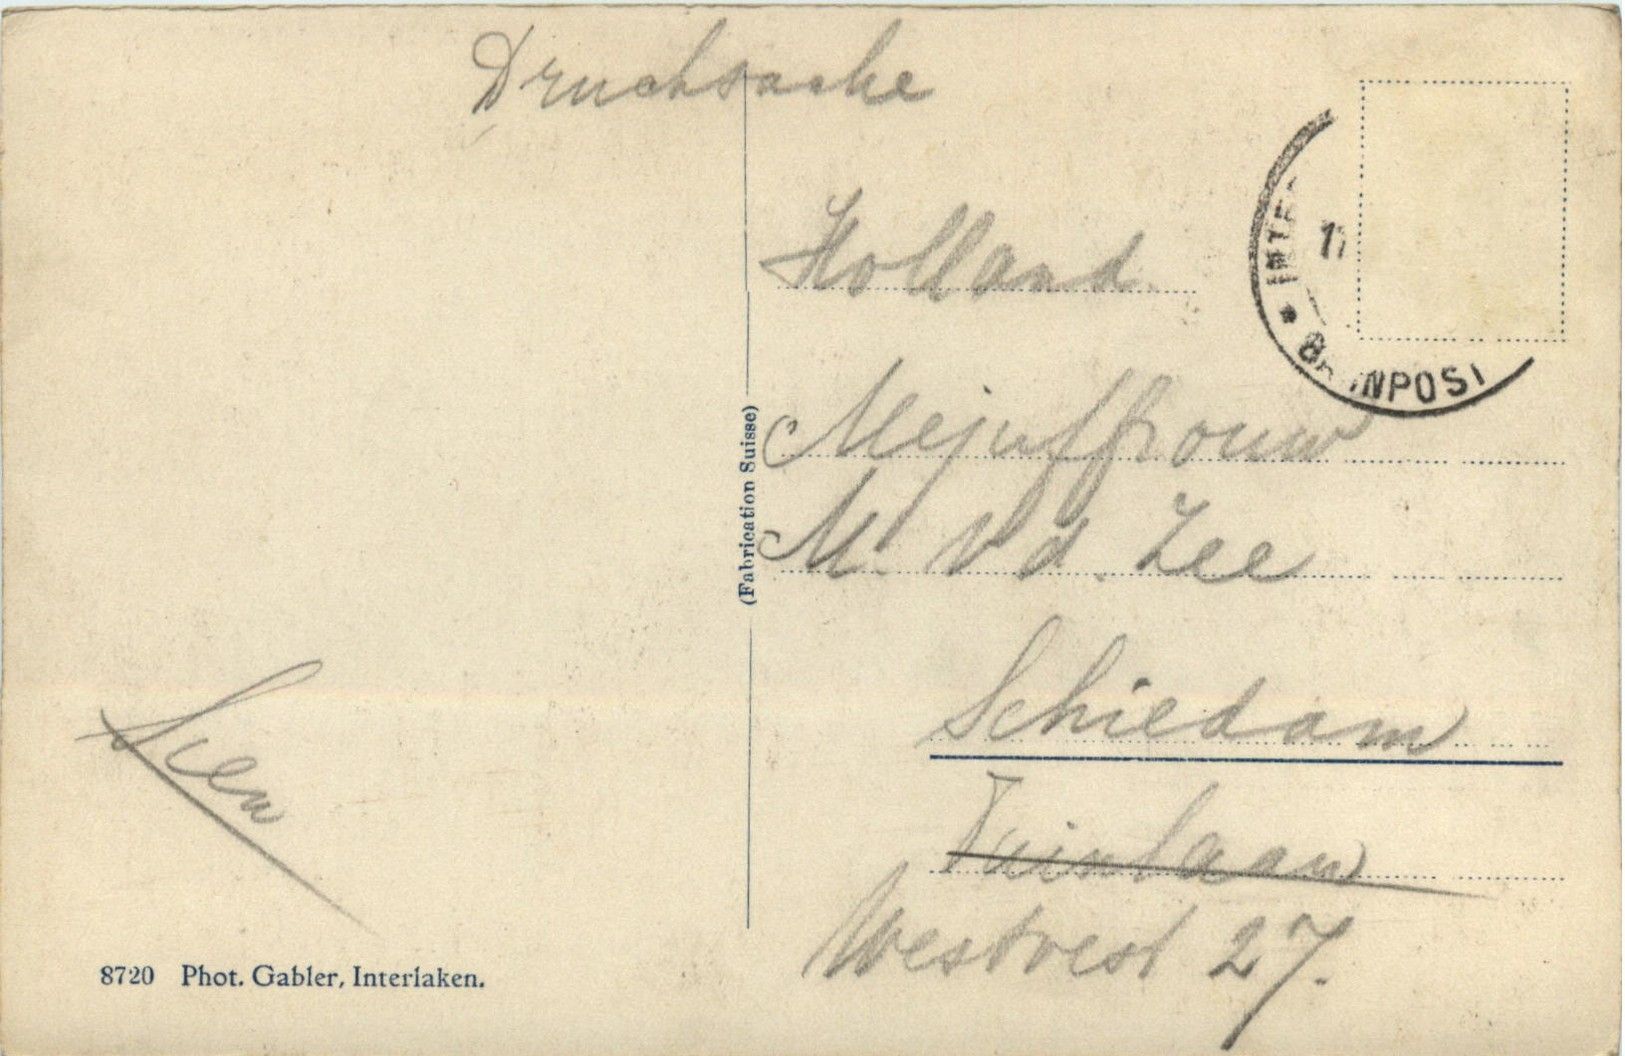 Druchsache
Holland
Mejuffrouw
M. v d. Zee
Schiedam
Tuinlaan
Westvest 27.
Sien
(Fabrication Suisse)
8720 Phot. Gabler, Interlaken.
17